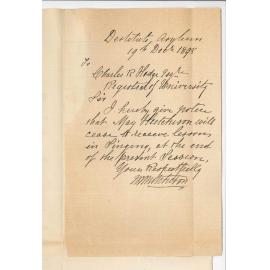 Destitute Asylum
19th Octr 1898
To
Charles R Hodge Esqre
Registrar of University
Sir
I hereby give notice
that May Hutchison will
cease to receive lessons
in Singing, at the end
of the present Session,
Yours Respectfully